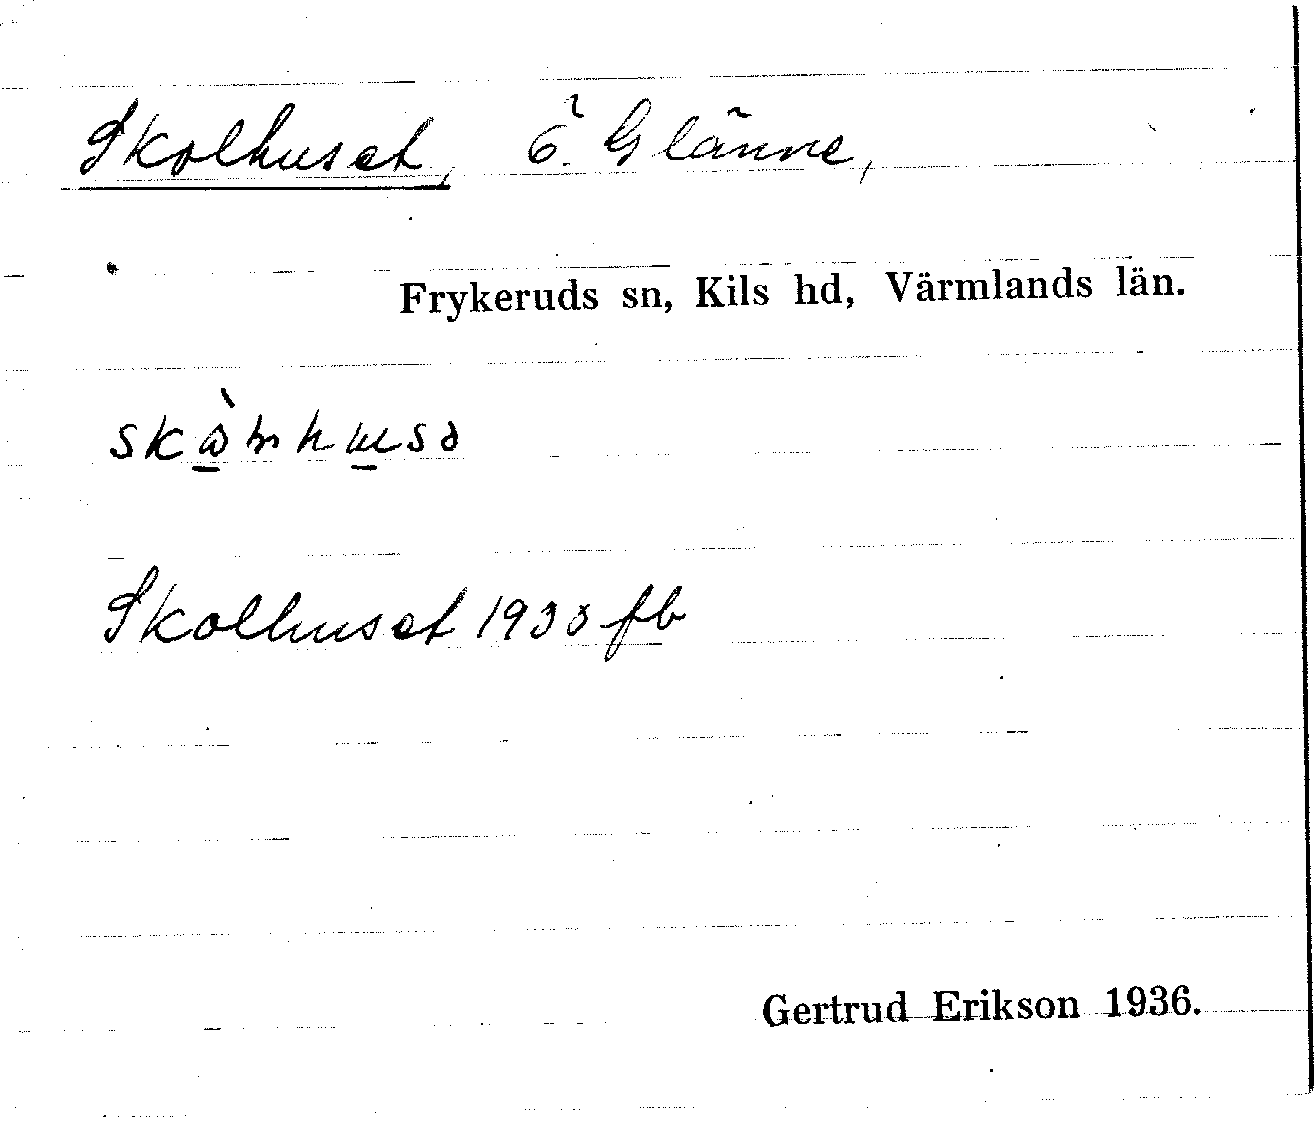 Skolhuset, Ö. Glänne,
Frykeruds sn, Kils hd, Värmlands län.
Skolhuset 1933 fb
Gertrud Erikson 1936.